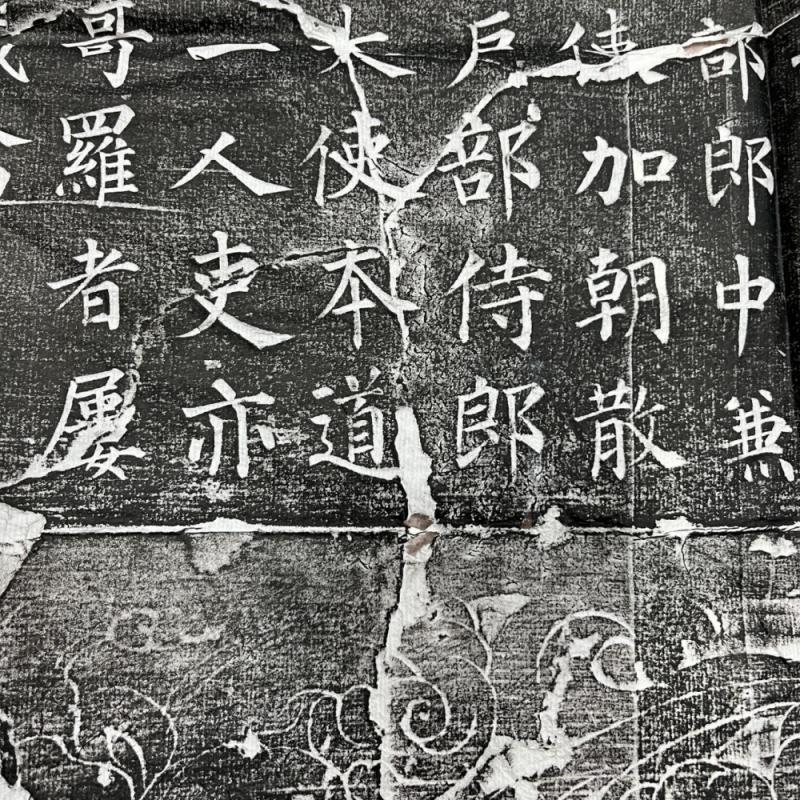 部郎中兼
使加朝散
戶部侍郎
木使本道
一人吏亦
哥羅者屢